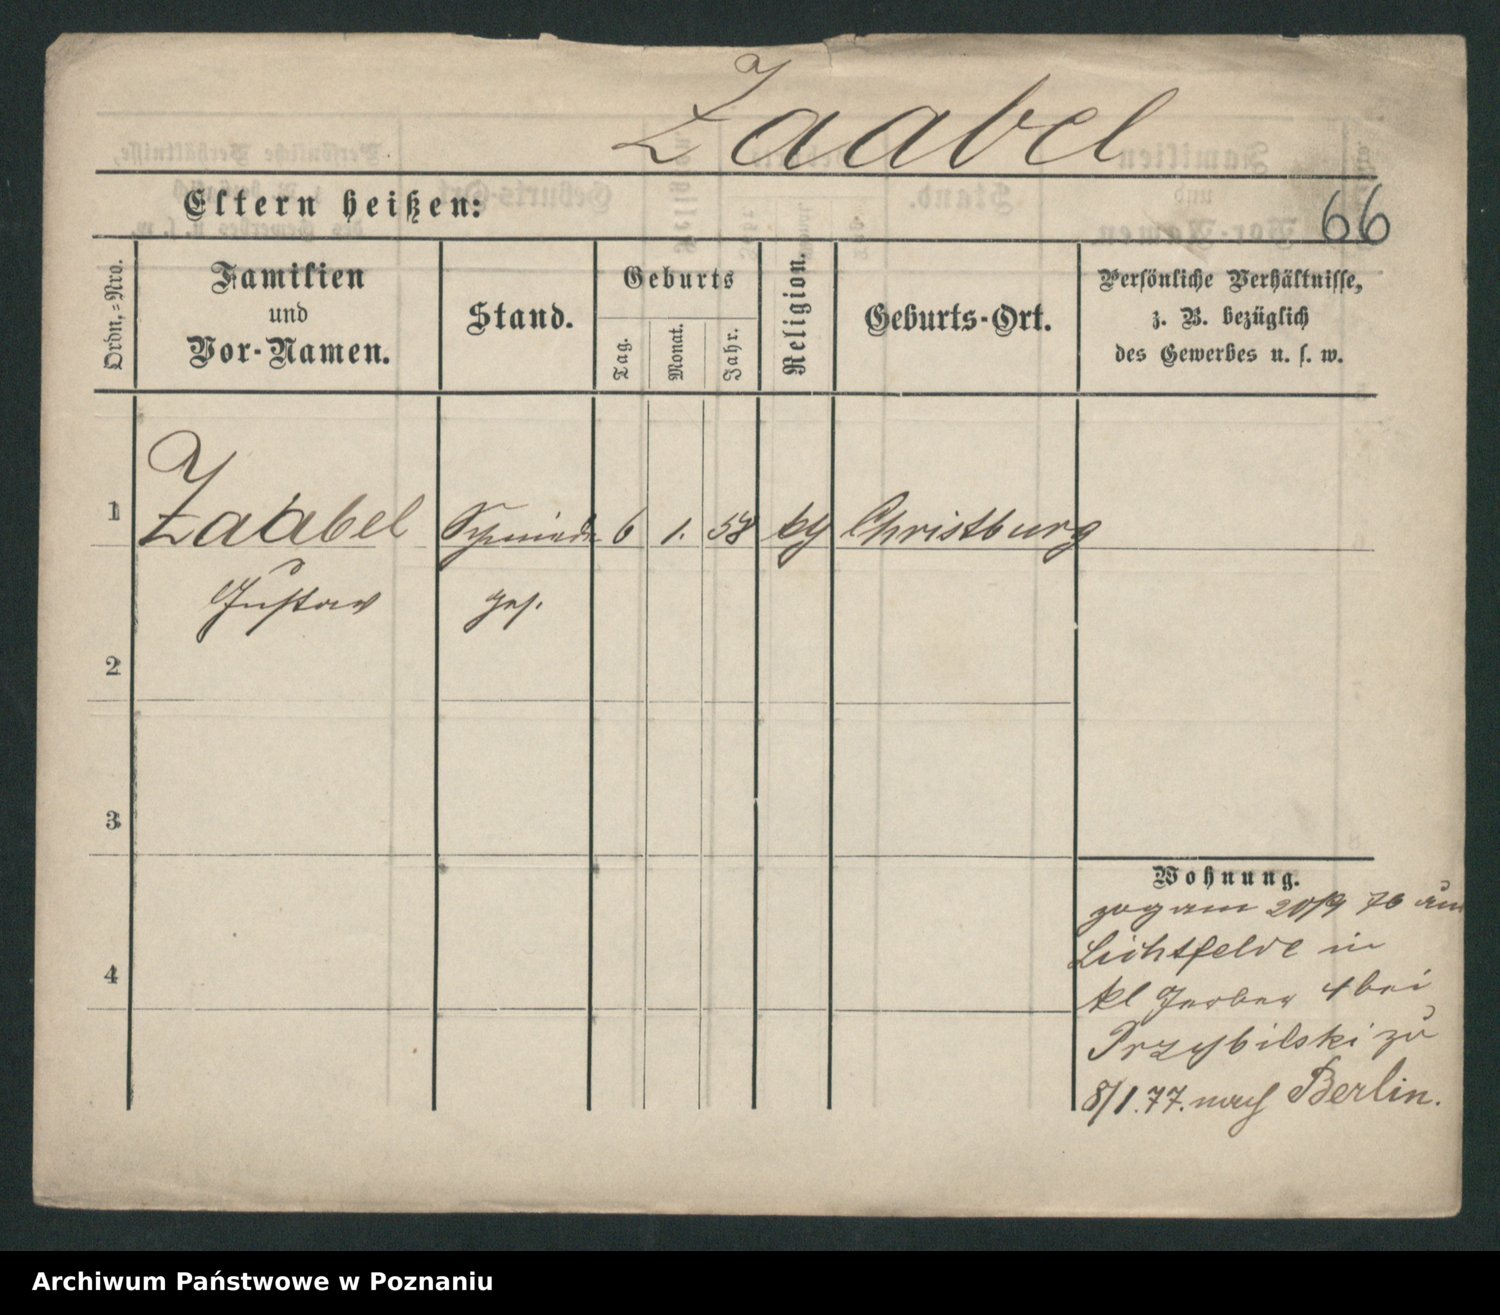 Zaabel
Eltern heißen:
66
Ordn.-Nro.
Familien
und
Vor-Namen.
Stand.
Geburts
Tag.
Monat.
Jahr.
Religion.
Geburts-Ort.
Persönliche Verhältnisse,
z. B. bezüglich
des Gewerbes u. s. w.
1 Zaabel Schmiede 6 1. 58 kth Christburg
Gustav ges.
2
3
4
Wohnung.
zog am 20/9 76 aus
Lichtfelde in
kl Gerber 4 bei
Przybilski zu
8/1.77. nach Berlin.
Archiwum Państwowe w Poznaniu